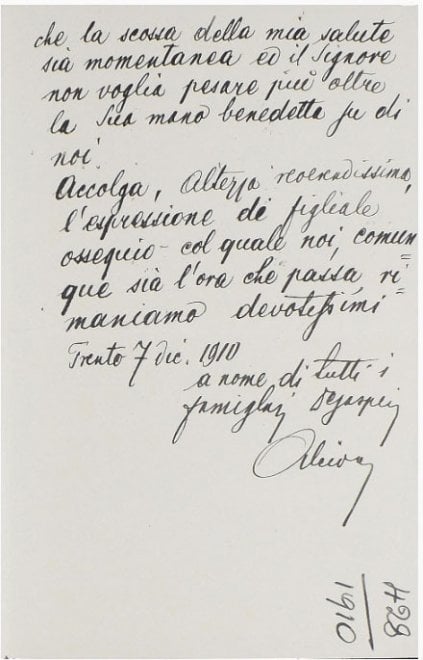 che la scossa della mia salute
sia momentanea ed il Signore
non voglia pesare più oltre
la Sua mano benedetta su di
noi.
Accolga, Altezza reverendissima,
l'espressione di figliale
ossequio col quale noi, comun=
que sia l'ora che passa, ri=
maniamo devotissimi
Trento 7 dic. 1910
a nome di tutti i
famigliari Degasperi
Alcide
1910
428